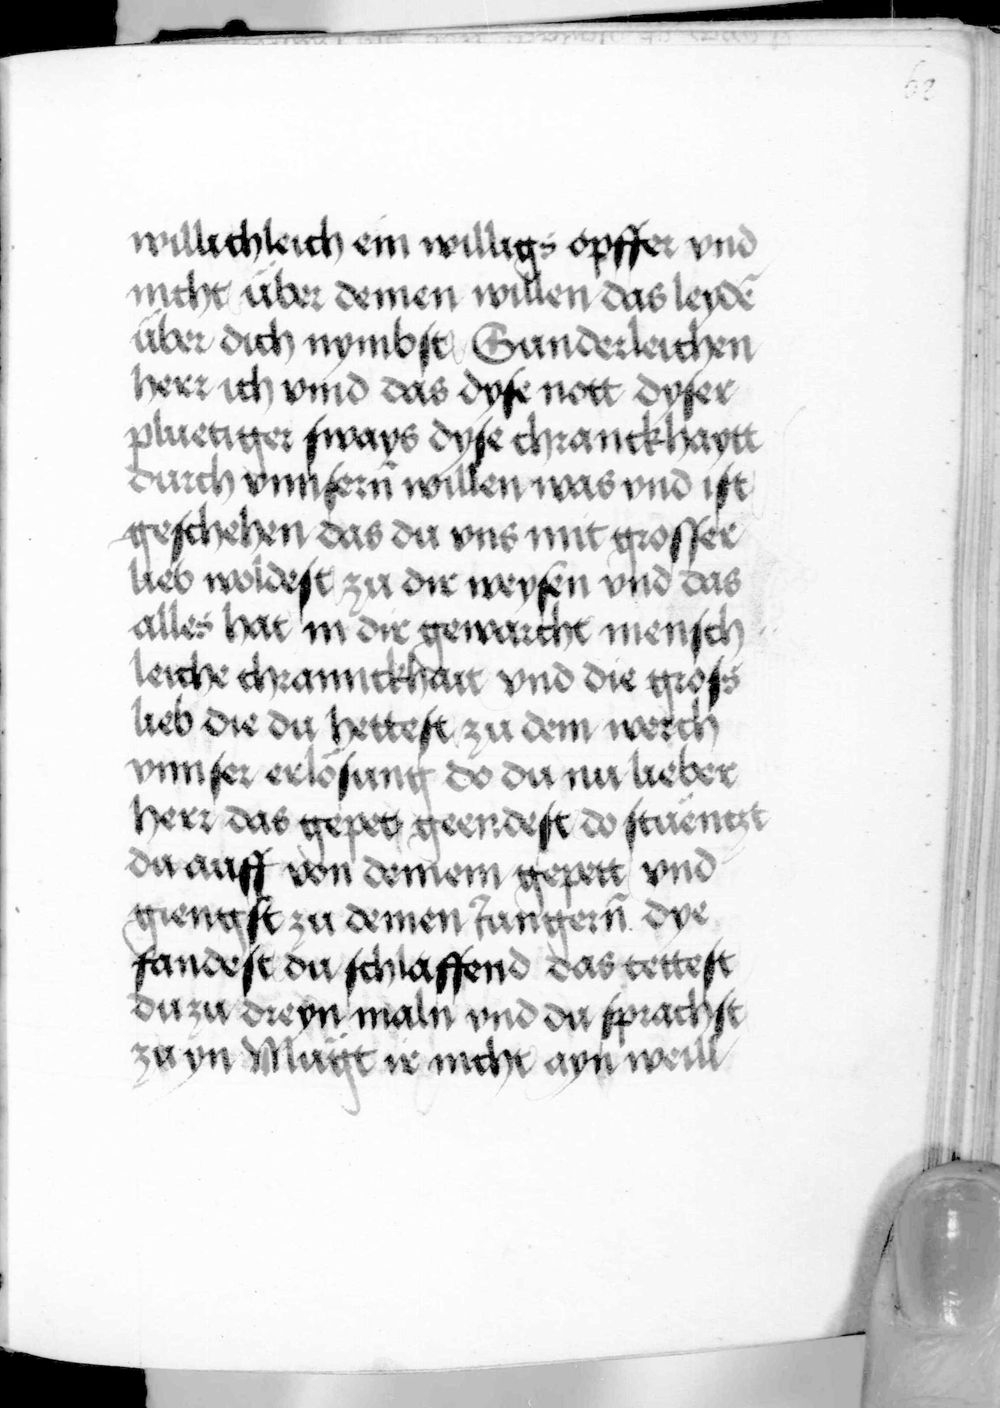 62
willichleich ein willigs opffer vnd
nicht über deinen willen das leydē
über dich nymbst Sunderleichen
herr ich vind das dyse nott dyser
pluetiger sways dyse chranckhaytt
durch vnnsern̄ willen was vnd ist
geschehen das du vns mit grosser
lieb woldest zu dir weysen vnd das
alles hat in dir gewarcht mensch
leiche chrannckhait vnd die gross
lieb die du hettest zu dem werch
vnnser erlösung do du nu lieber
herr das gepet geendest do stuentzt
du auff von deinem gepett vnd
giengst zu deinen Jungern̄ dye
fandest du schlaffend das tettest
du zu dreyn maln vnd du sprachst
zu yn Mügt ir nicht ayn weill